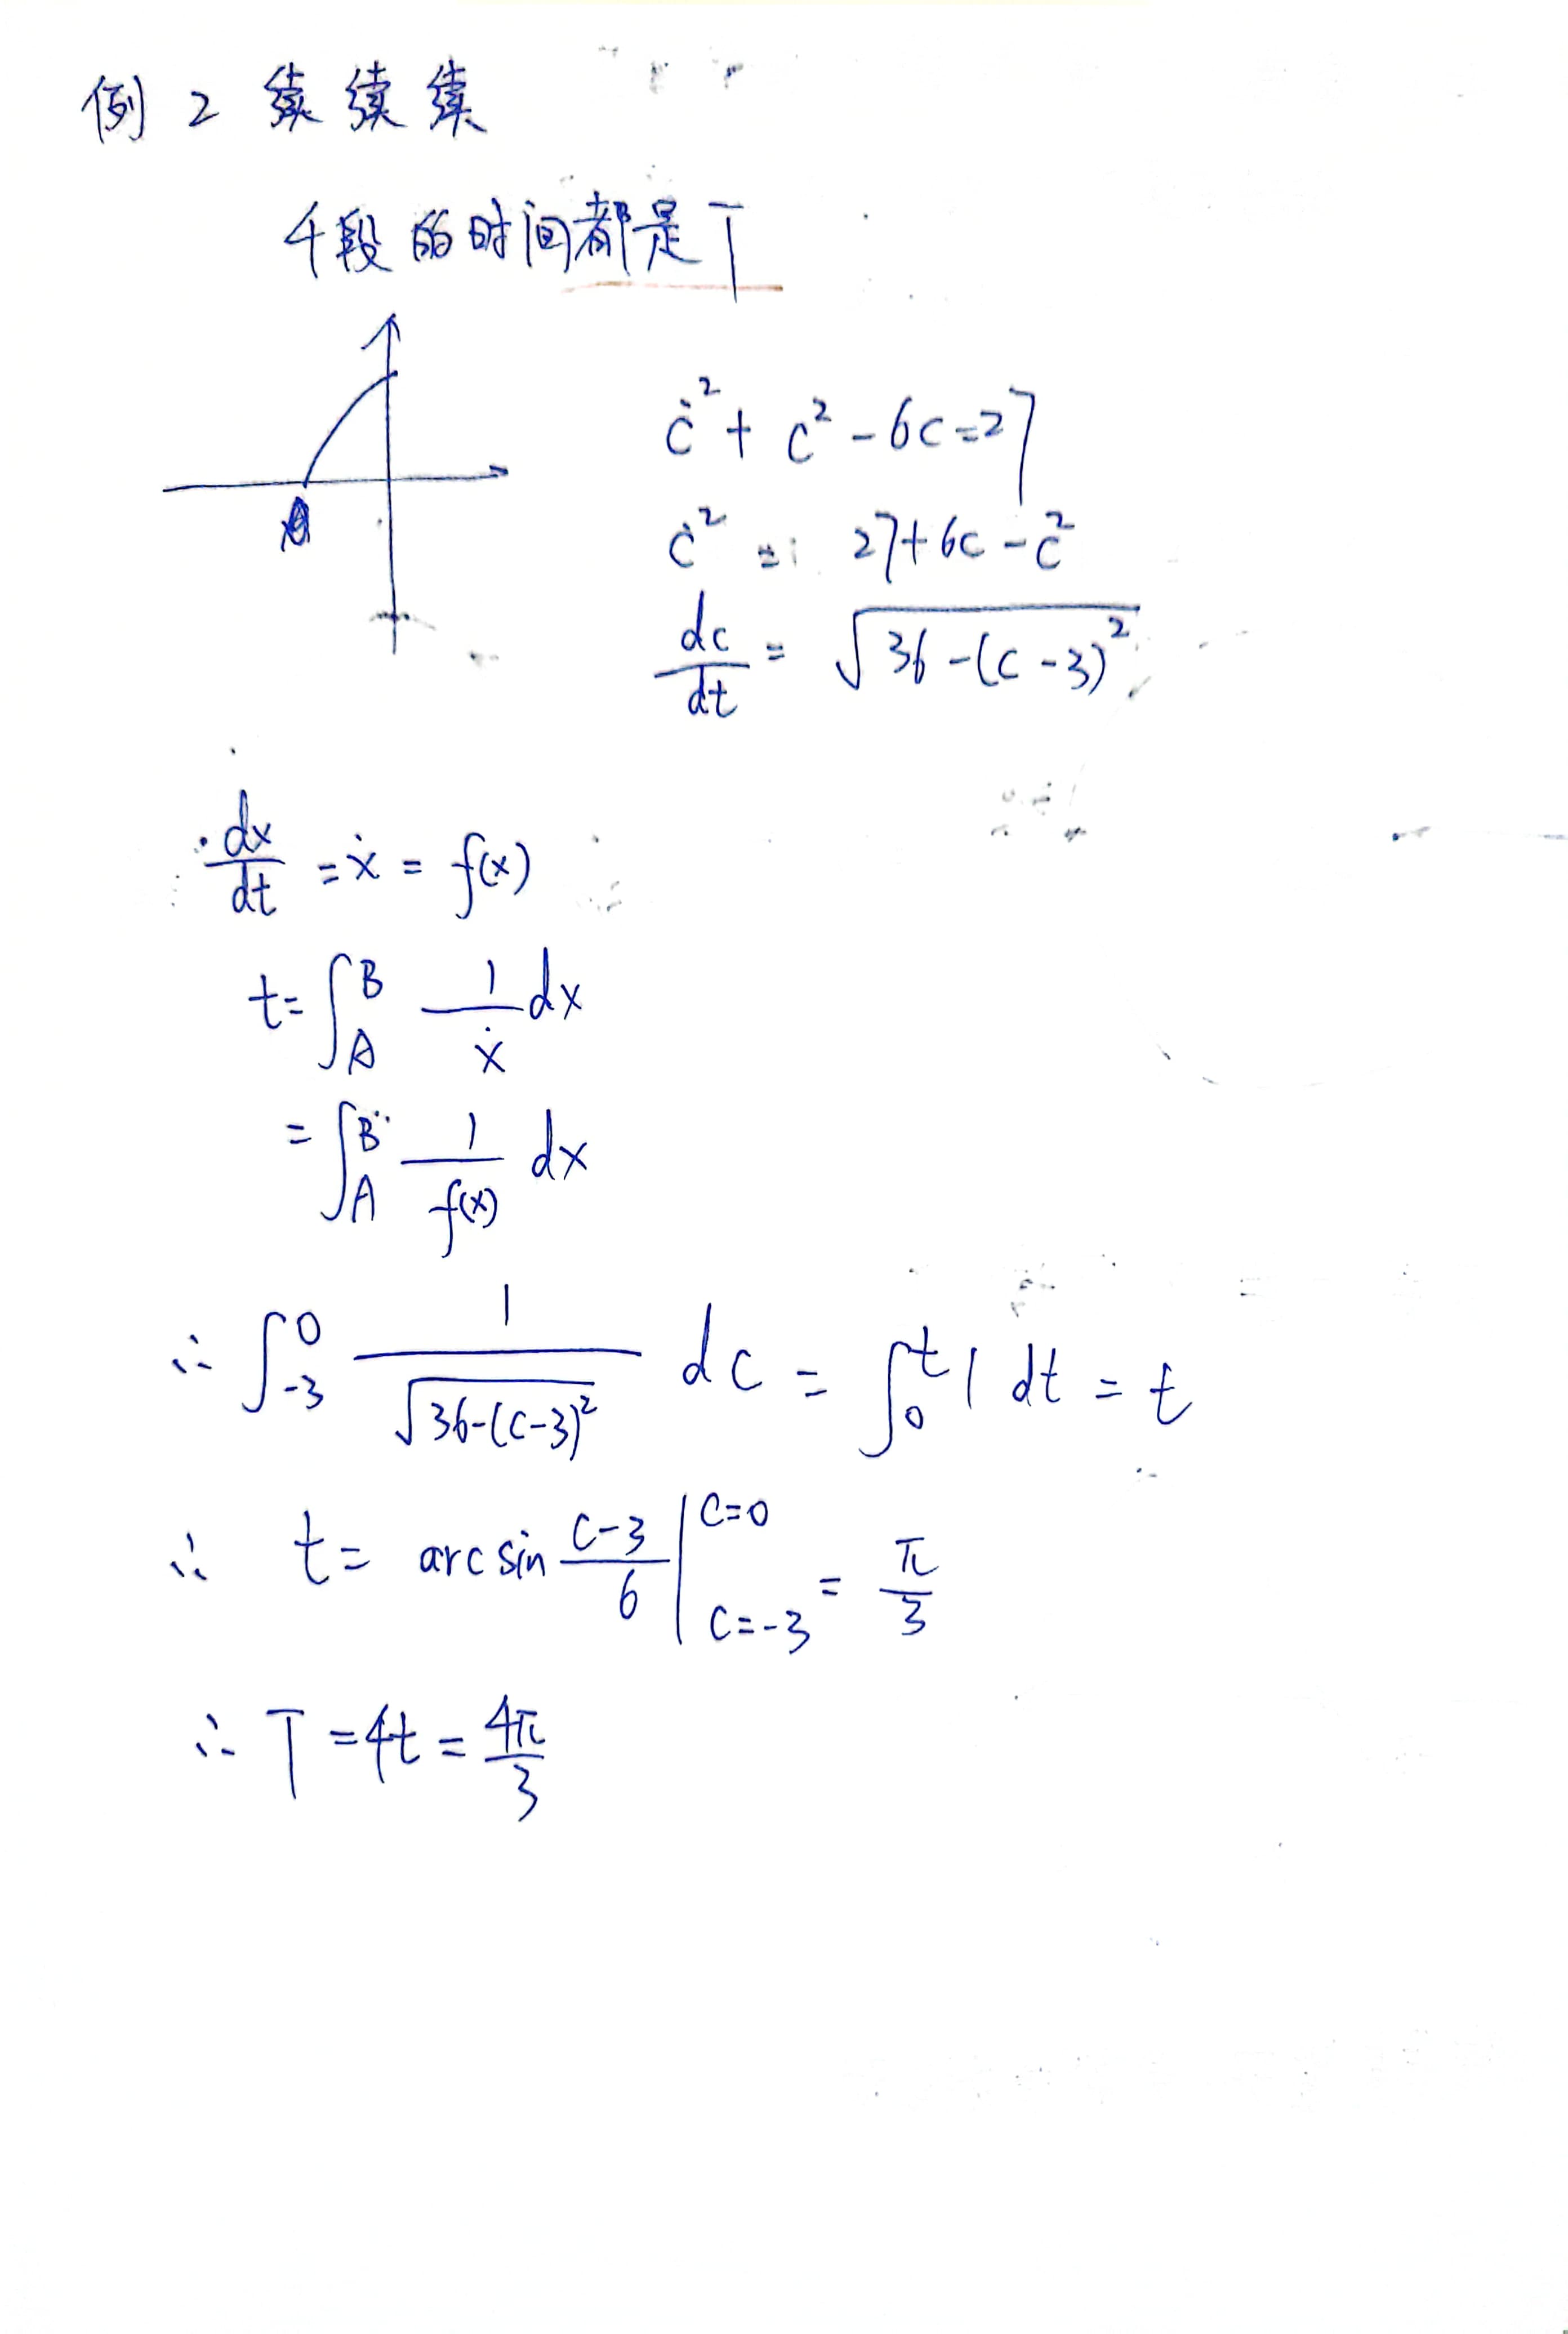 例2 续续续
4段的时间都是T
A
ċ² + c² - 6c = 27
ċ² = 27 + 6c - c²
dc/dt = √(36 - (c - 3)²)
dx/dt = ẋ = f(x)
t = ∫_A^B 1/ẋ dx
= ∫_A^B 1/f(x) dx
∴ ∫_{-3}^0 1/√(36-(c-3)²) dc = ∫_0^t 1 dt = t
∴ t = arcsin (c-3)/6 |_{c=-3}^{c=0} = π/3
∴ T = 4t = 4π/3